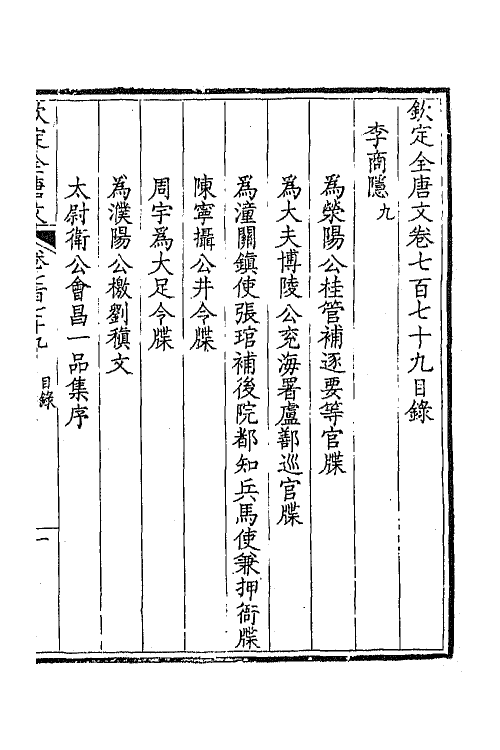 欽定全唐文卷七百七十九目錄
李商隱九
為滎陽公桂管補逐要等官牒
為大夫博陵公兗海署盧鄯巡官牒
為潼關鎮使張琯補後院都知兵馬使兼押衙牒
陳寧攝公井令牒
周宇為大足令牒
為濮陽公檄劉稹文
太尉衛公會昌一品集序
欽定全唐文
卷七百七十九
目錄
一